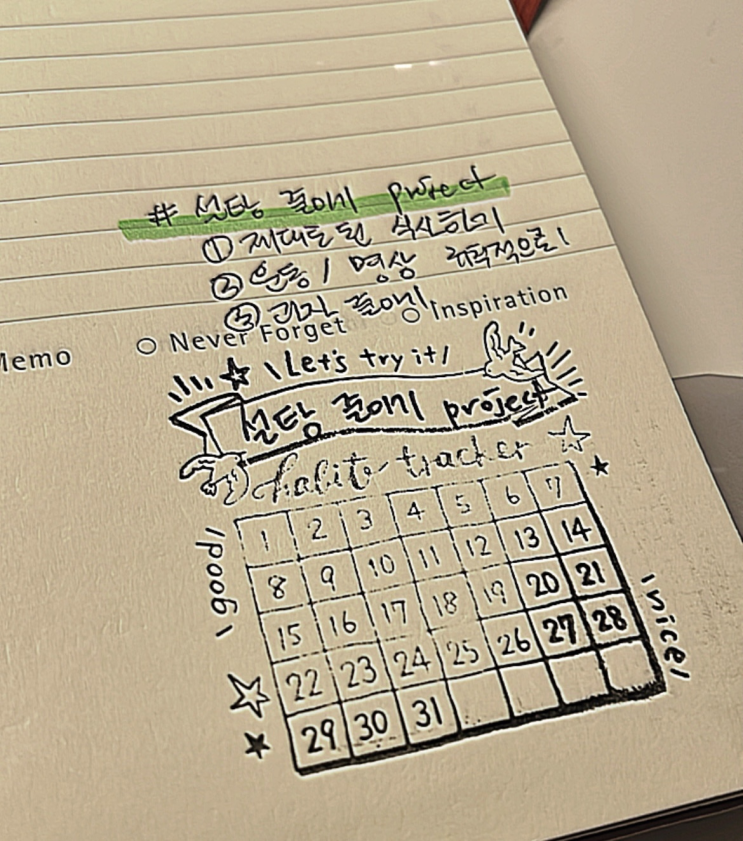 # 설탕 줄이기 project
① 제대로 된 식사하기
② 운동 / 명상 규칙적으로!
③ 과자 줄이기
Memo ○ Never Forget ○ Inspiration
\ Let's try it /
설탕 줄이기 project
habit tracker
1 2 3 4 5 6 7
8 9 10 11 12 13 14
15 16 17 18 19 20 21
22 23 24 25 26 27 28
29 30 31
\ good /
\ nice /